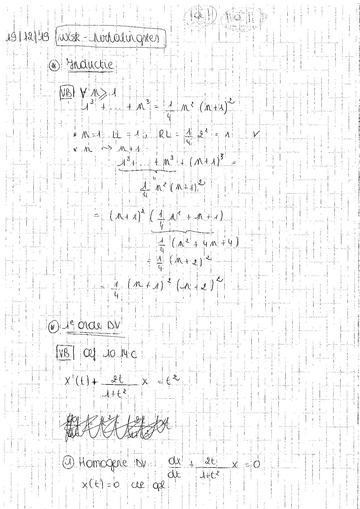 19/12/19 Wisk - herhalingsles
* Inductie
VB ∀ n ≥ 1
1³ + ... + n³ = 1/4 n² (n+1)²
• n=1 LL = 1, RL = 1/4 2² = 1 ✓
• n → n+1
1³ + ... + n³ + (n+1)³ =
1/4 n² (n+1)²
= (n+1)² (1/4 n² + n + 1)
1/4 (n² + 4n + 4)
= 1/4 (n+2)²
= 1/4 (n+1)² (n+2)²
* 1e orde DV
VB Oef 10.14c
x'(t) + 2t/1+t² x = t²
① Homogene DV: dx/dt + 2t/1+t² x = 0
x(t) = 0 cte opl